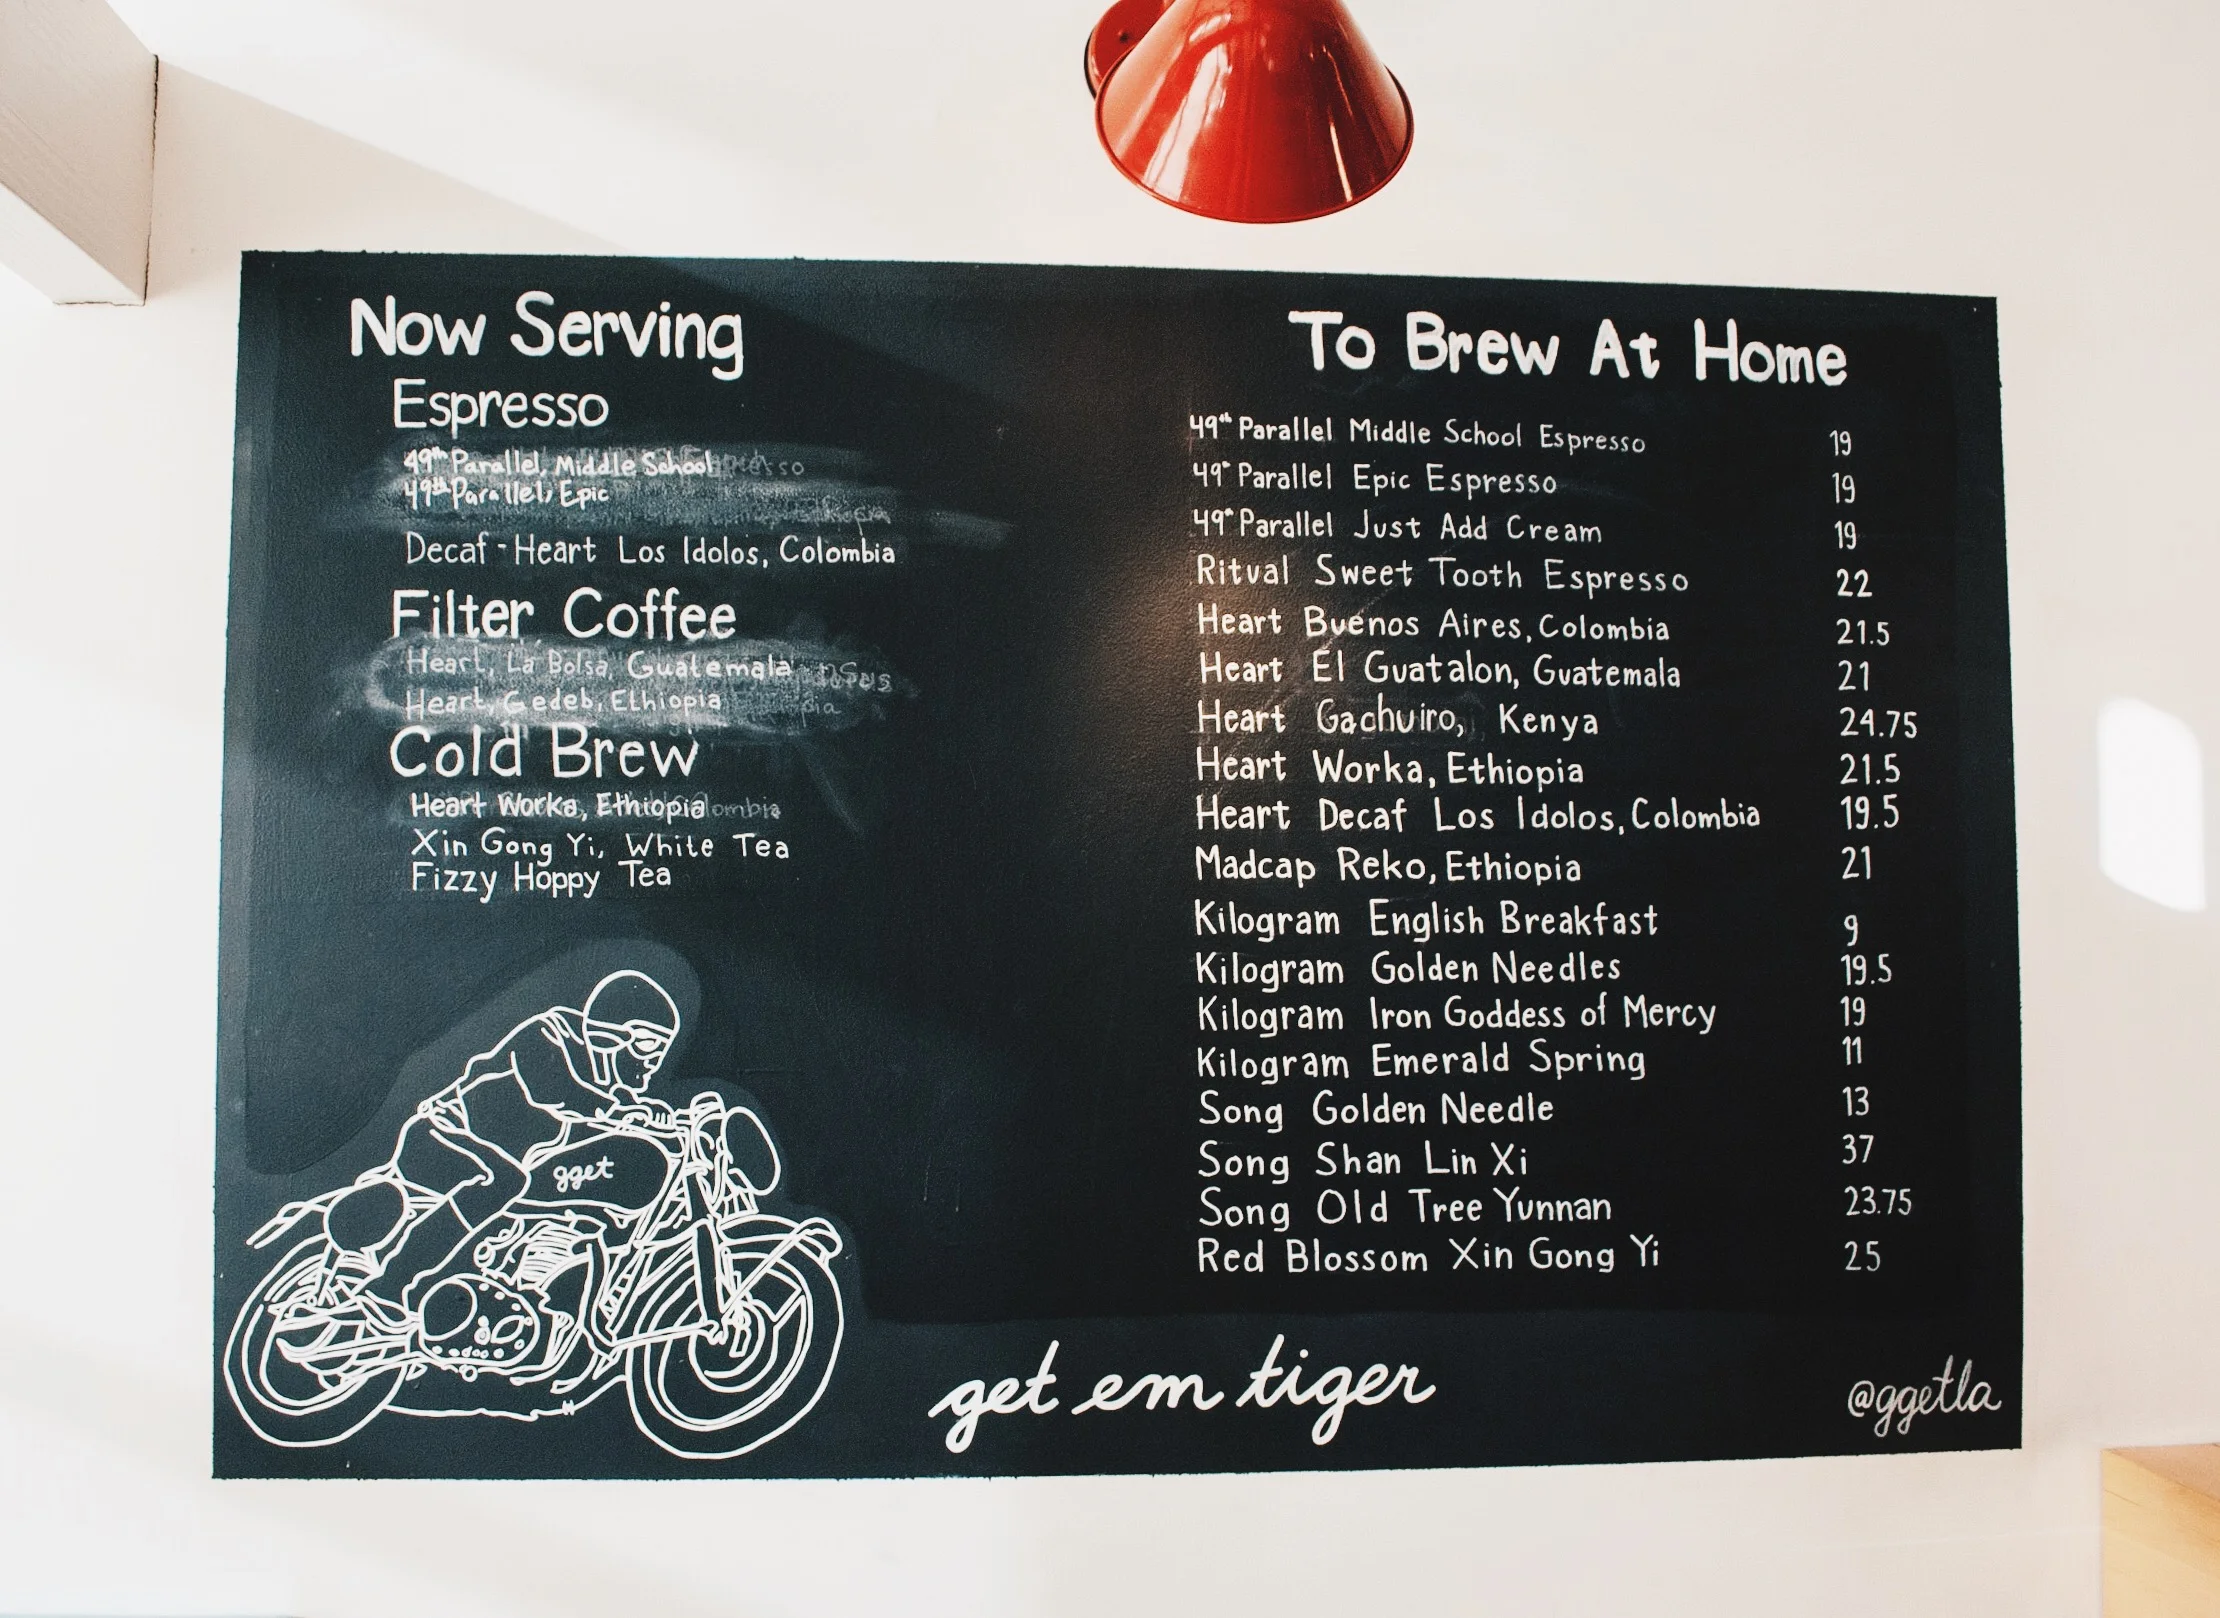 Now Serving
Espresso
49th Parallel, Middle School
49th Parallel, Epic
Decaf - Heart Los Idolos, Colombia
Filter Coffee
Heart, La Bolsa, Guatemala
Heart, Gedeb, Ethiopia
Cold Brew
Heart Worka, Ethiopia
Xin Gong Yi, White Tea
Fizzy Hoppy Tea
gget
To Brew At Home
49th Parallel Middle School Espresso 19
49th Parallel Epic Espresso 19
49th Parallel Just Add Cream 19
Ritual Sweet Tooth Espresso 22
Heart Buenos Aires, Colombia 21.5
Heart El Guatalon, Guatemala 21
Heart Gachuiro, Kenya 24.75
Heart Worka, Ethiopia 21.5
Heart Decaf Los Idolos, Colombia 19.5
Madcap Reko, Ethiopia 21
Kilogram English Breakfast 9
Kilogram Golden Needles 19.5
Kilogram Iron Goddess of Mercy 19
Kilogram Emerald Spring 11
Song Golden Needle 13
Song Shan Lin Xi 37
Song Old Tree Yunnan 23.75
Red Blossom Xin Gong Yi 25
get em tiger
@ggetla